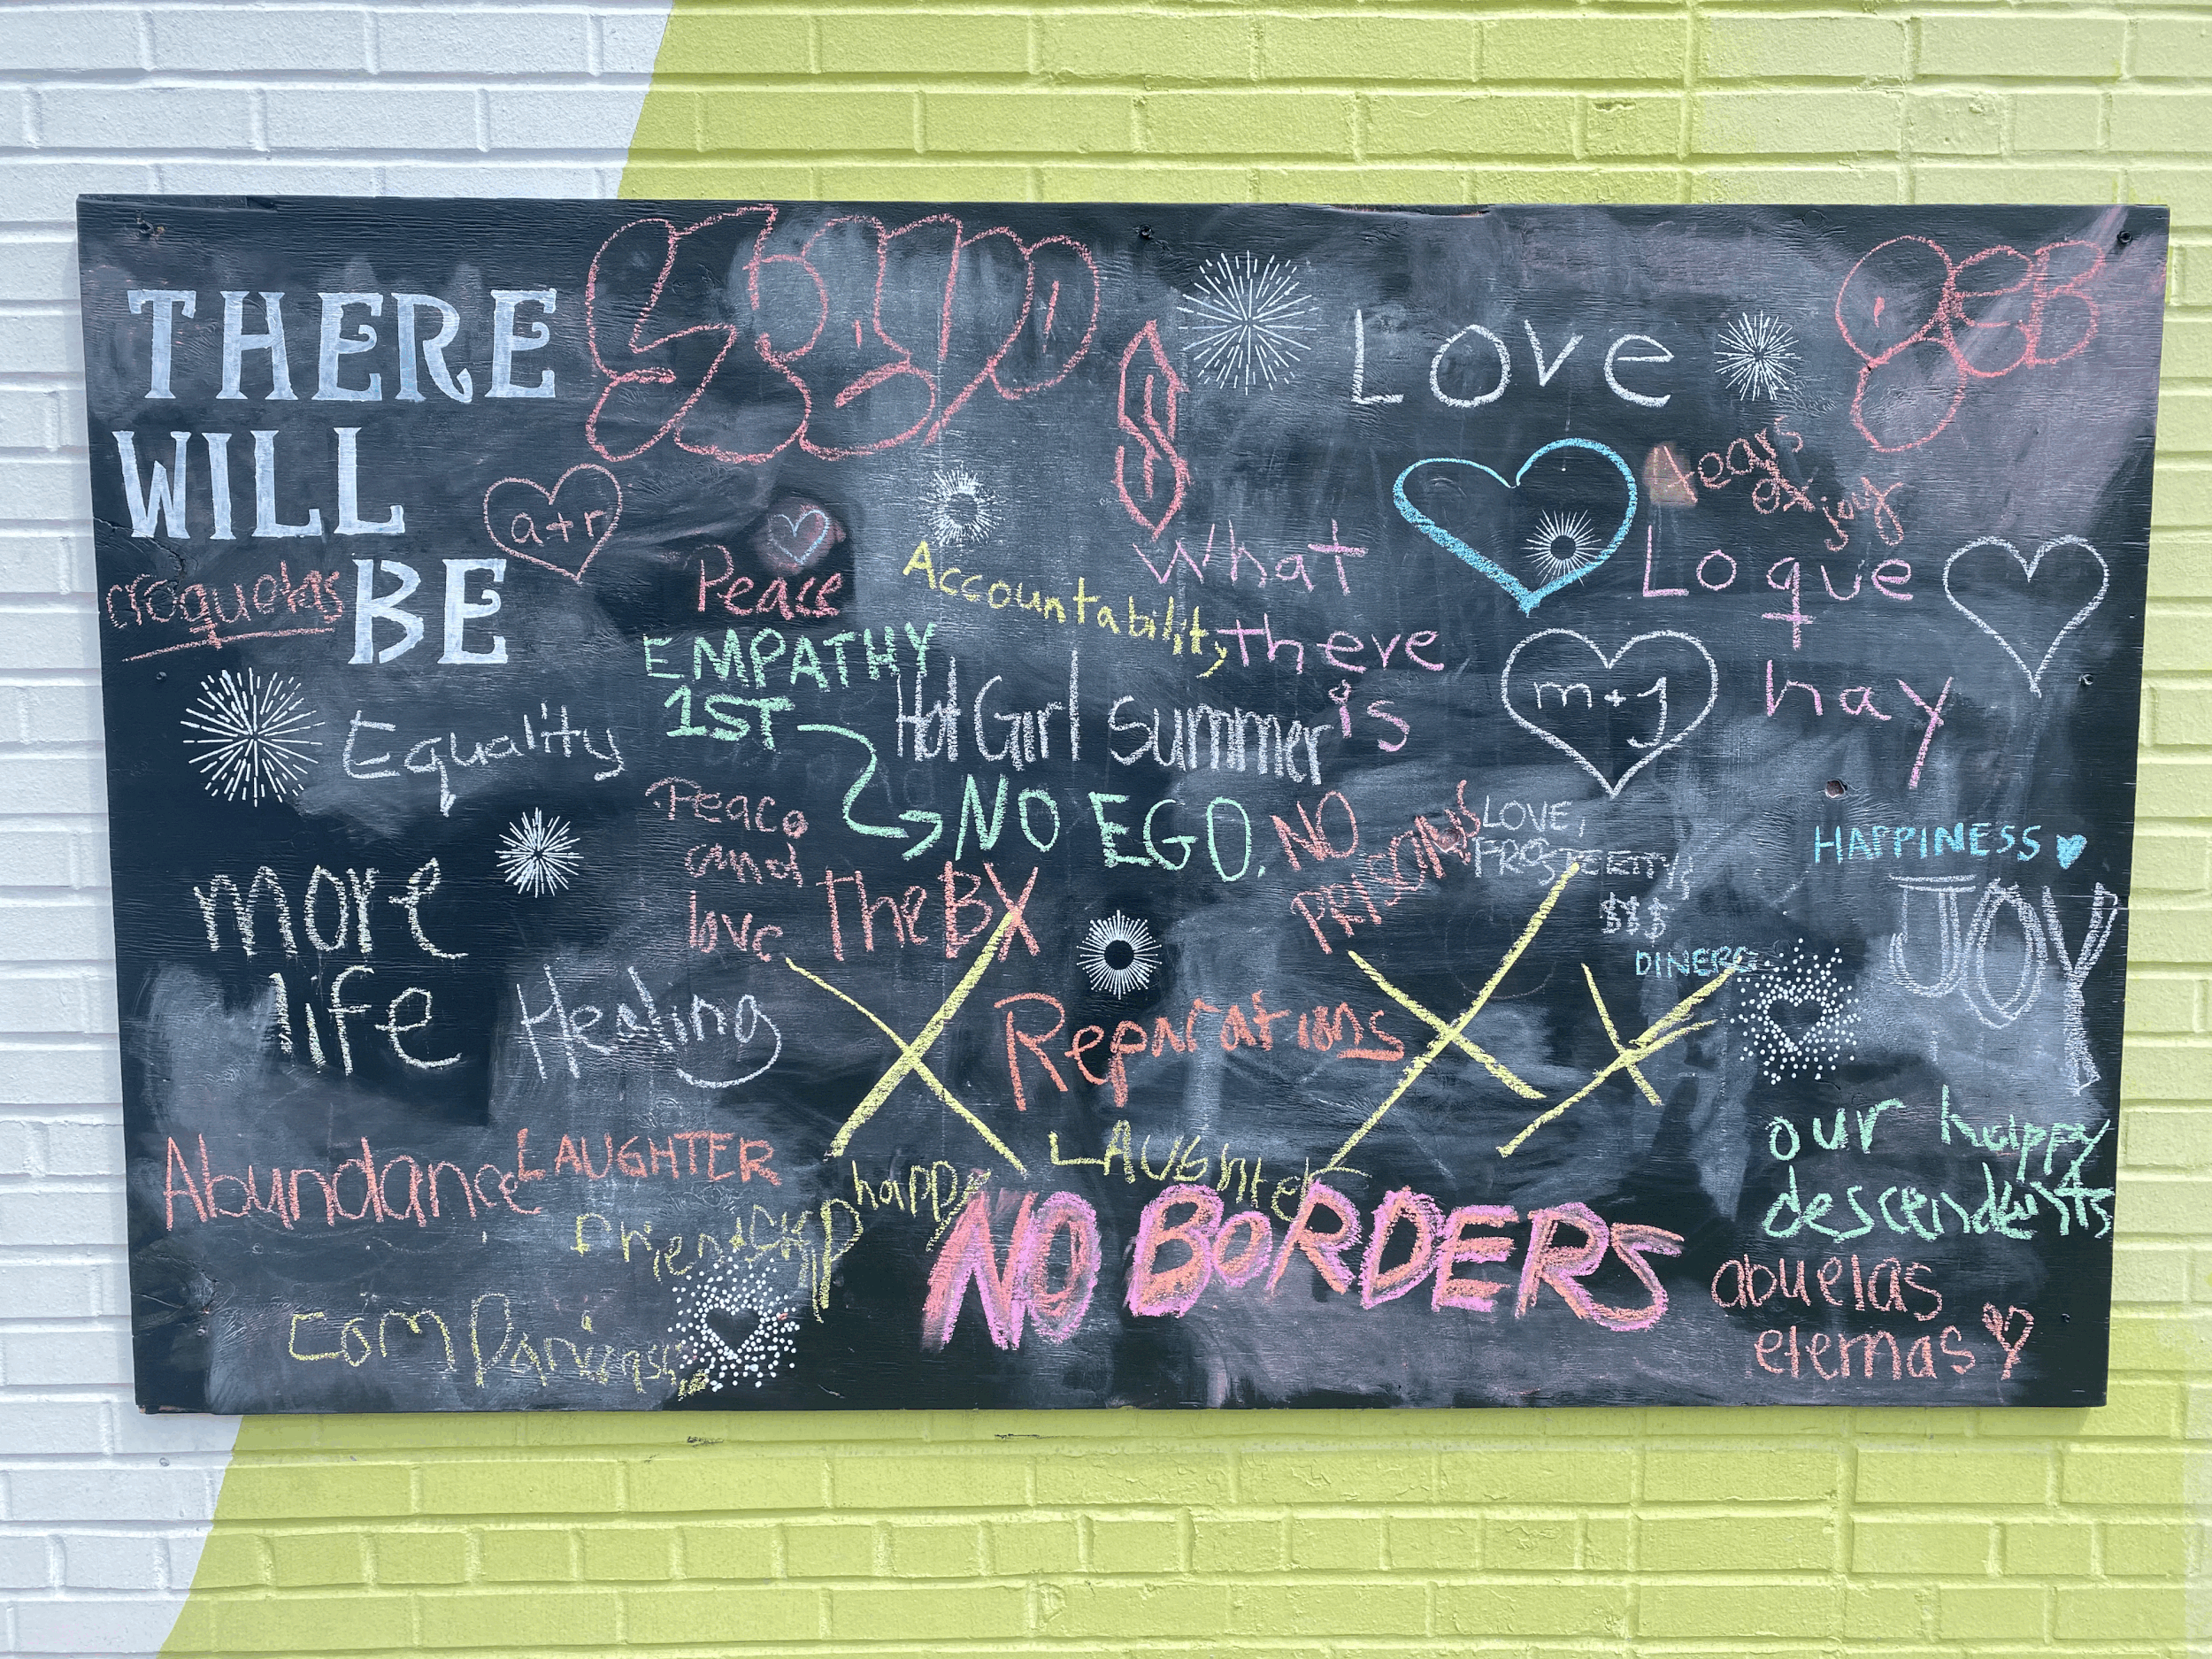 THERE
WILL
BE
croquetas
a+r
Love
tears
of joy
Peace
Accountability
What
there
is
Lo que
hay
EMPATHY
1ST
NO EGO.
Hot Girl Summer
m+J
Equality
Peace
and
love
The BX
NO
PRISONS
LOVE,
PROSPERITY,
$$$
DINERO
HAPPINESS
JOY
more
life
Healing
Reparations
Abundance
LAUGHTER
LAUGHTER
happy
friendship
NO BORDERS
our happy
descendents
abuelas
eternas